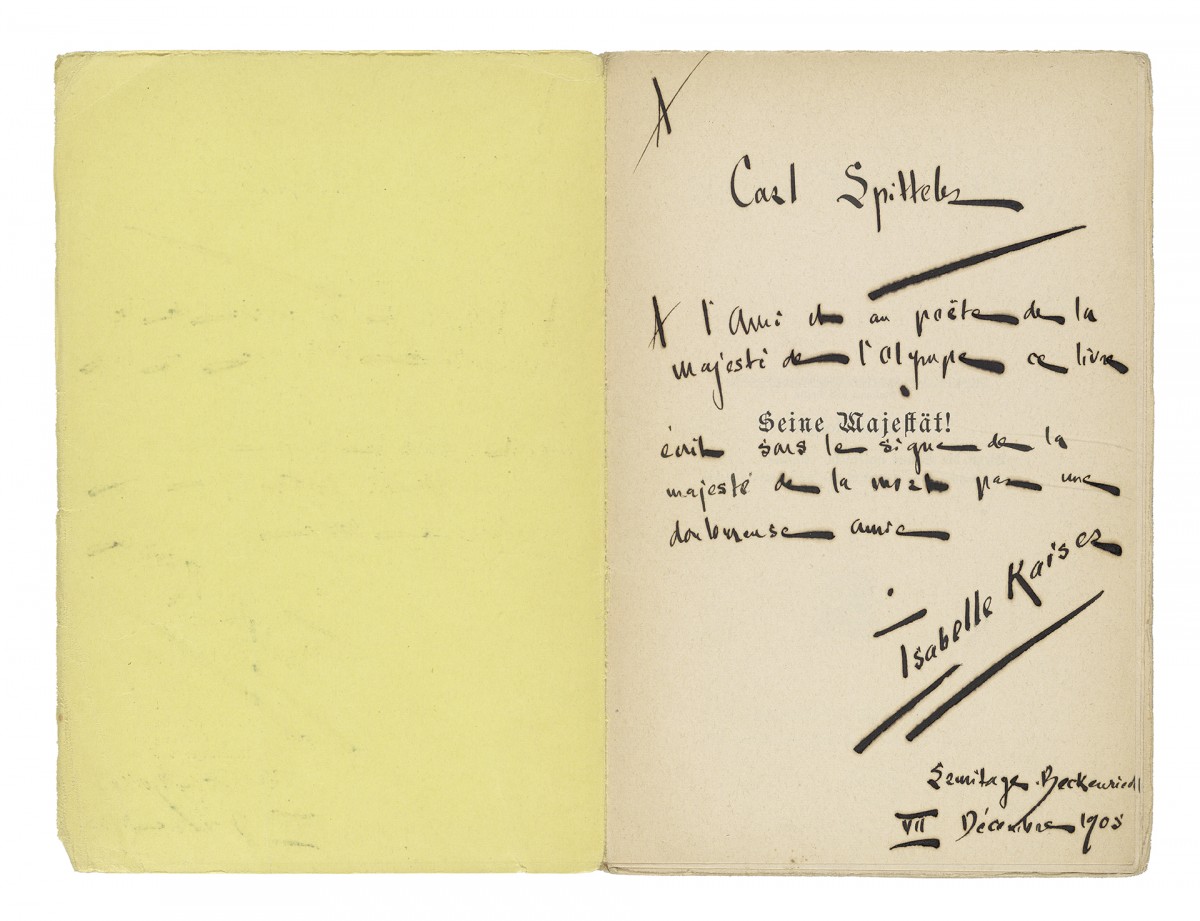 A
Carl Spitteler
A l'Ami et au poëte de la
majesté de l'Olympe ce livre
Seine Majestät!
écrit sous le signe de la
majesté de la mort par une
douloureuse amie
Isabelle Kaiser
Ermitage. Beckenried
VII Décembre 1905